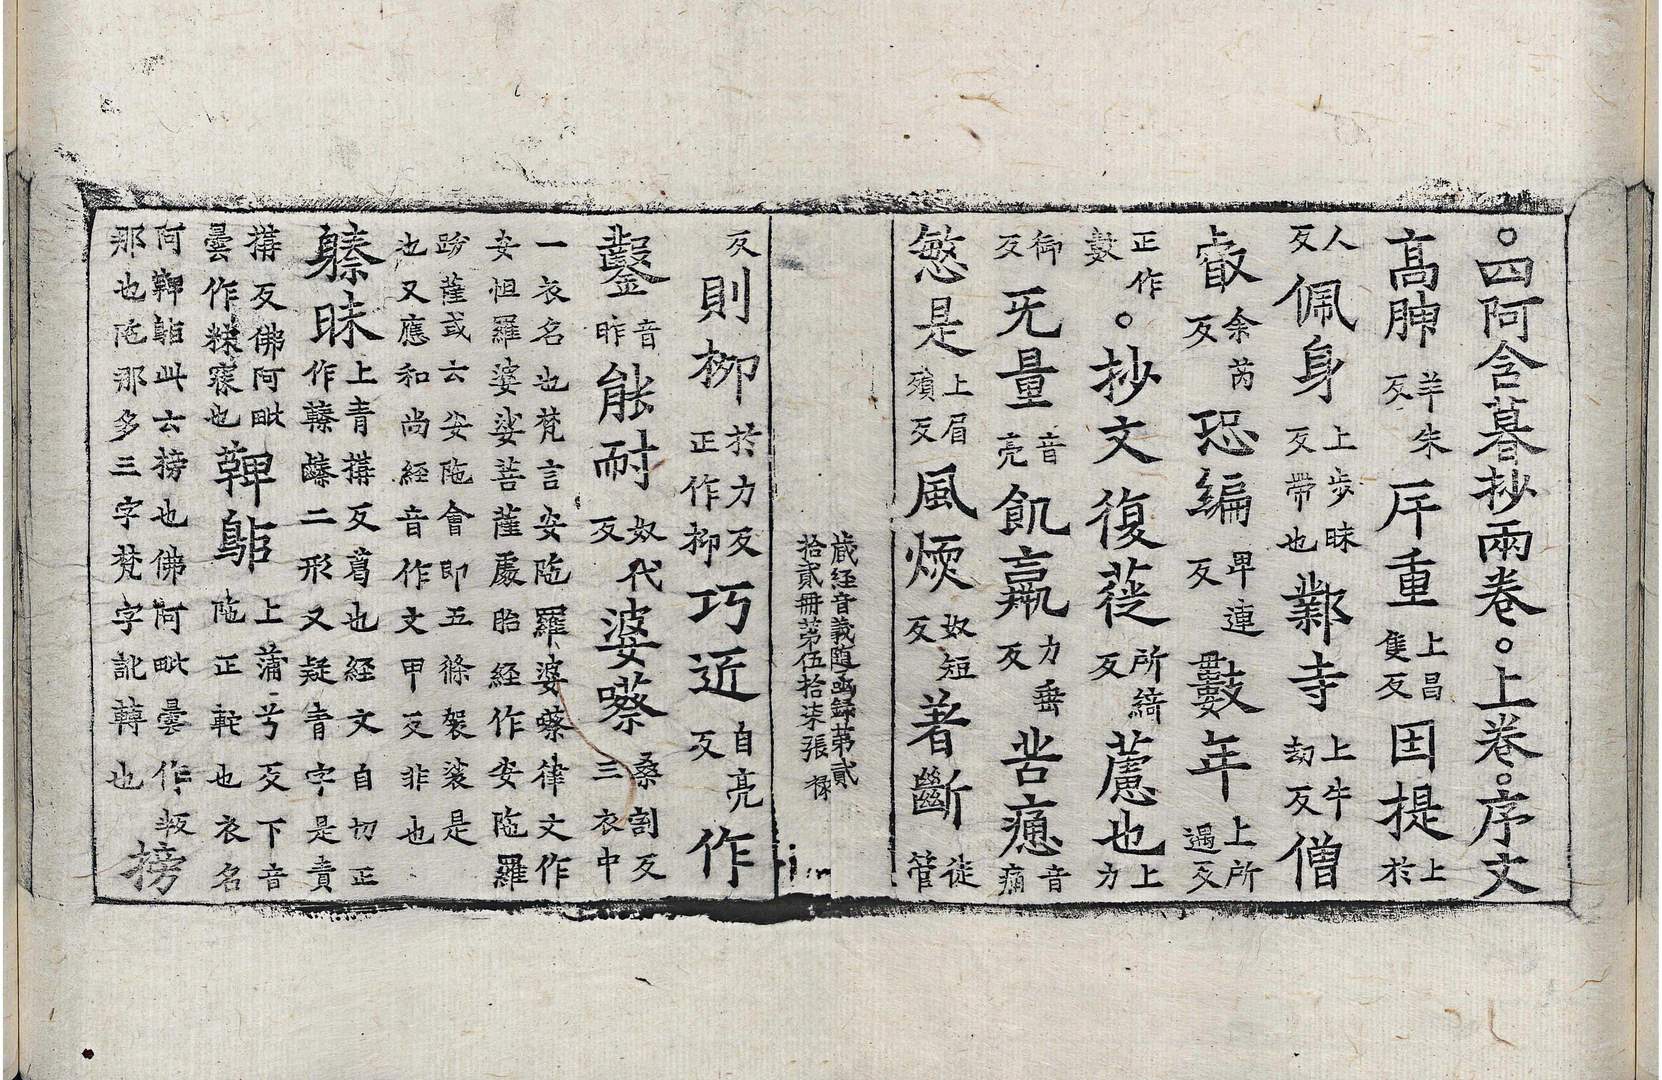 ○四阿含暮抄兩卷○上卷○序文
高䏔羊朱反斥重上昌隻反因提上於
人反佩身上步昧反帶也鄴寺上牛劫反僧
叡余芮反恐編卑連反數年上所遇反
正作數○抄文復蓰所綺反蔍也上力
御反旡量音亮飢羸力垂反苦癔音痛
慜是上眉殞反風煗奴短反著斷徒管
藏經音義隨函録苐貳
拾貳冊苐伍拾柒張
反則枊於力反正作抑巧近自亮反作
鑿音昨能耐奴代反婆㗫桑割反三衣中
一衣名也梵言安陁羅婆㗫律文作
安怛羅婆娑菩薩處胎經作安陁羅
跋薩或云安陁會即五條袈裟是
也又應和尚經音作文甲反非也
㬥昧上青搆反葛也經文自切正作䕽䕽二形又疑青字是責
搆反佛阿毗曇作䊞寐也鞞䩢上蒲兮反下音陁正軦也衣名
阿鞞䩢此云搒也佛阿毗曇作搬
那也陁那多三字梵字訛轉也搒